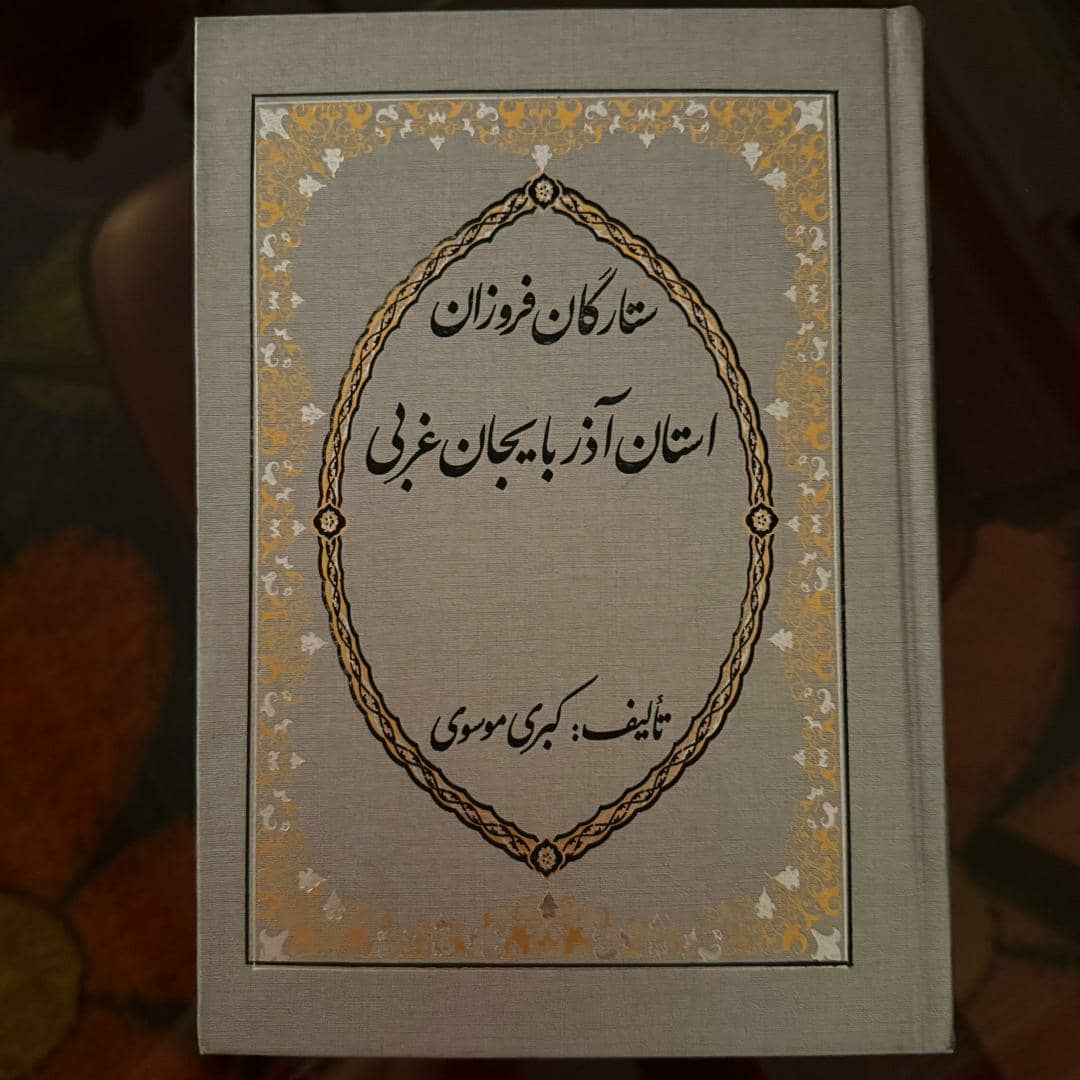 ستارگان فروزان
استان آذربایجان غربی
تألیف: کبری موسوی